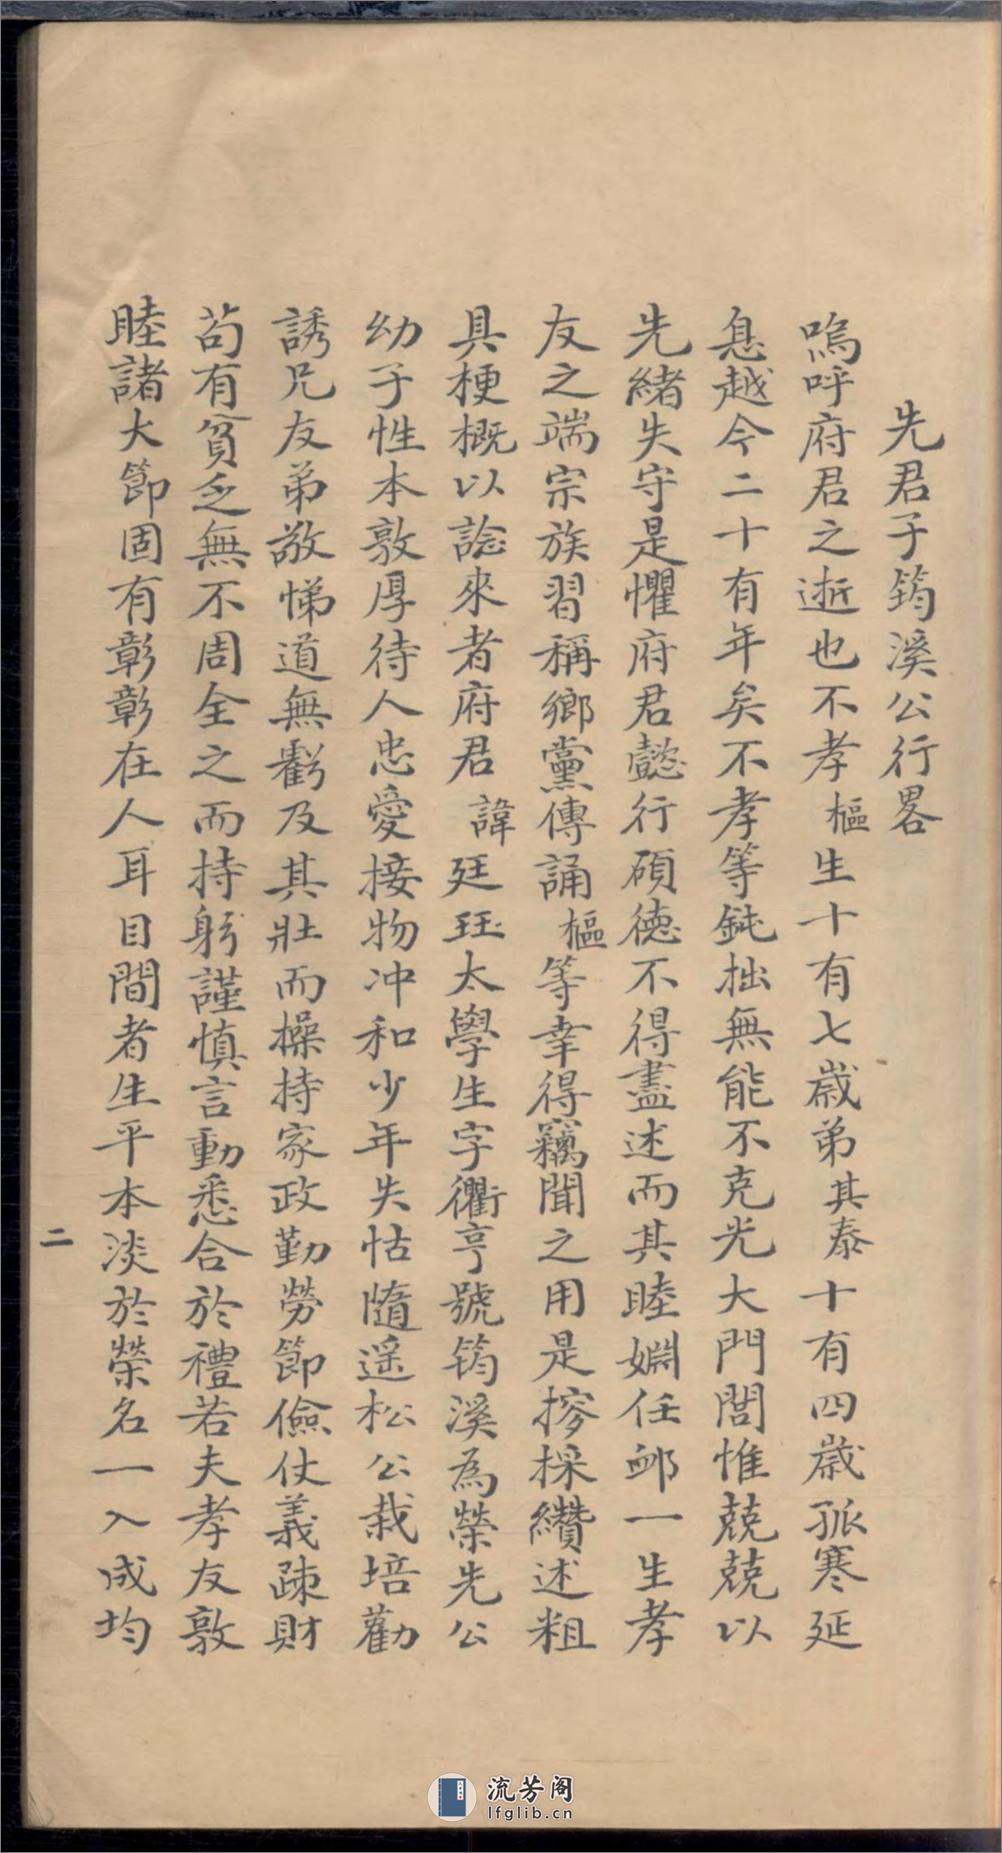 先君子筠溪公行畧
嗚呼府君之逝也不孝樞生十有七歲弟其泰十有四歲孤寒延
息越今二十有年矣不孝等鈍拙無能不克光大門閭惟兢兢以
先緒失守是懼府君懿行碩德不得盡述而其睦婣任卹一生孝
友之端宗族習稱鄉黨傳誦樞等幸得竊聞之用是摉採纘述粗
具梗概以諗來者府君諱廷玨太學生字衢亨號筠溪為榮先公
幼子性本敦厚待人忠愛接物冲和少年失怙隨遥松公栽培勸
誘兄友弟敬悌道無虧及其壯而操持家政勤勞節儉仗義疎財
苟有貧乏無不周全之而持躬謹慎言動悉合於禮若夫孝友敦
睦諸大節固有彰彰在人耳目間者生平本淡於榮名一入成均
二
流芳阁
lfglib.cn